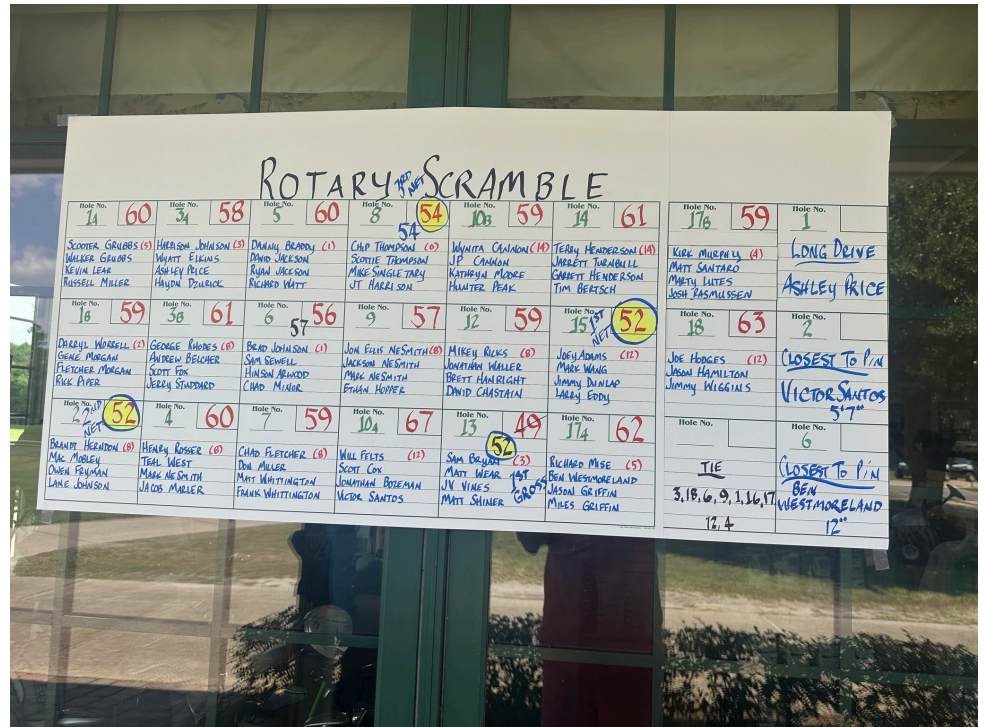 ROTARY SCRAMBLE
3RD NET
Hole No. 1A 60
SCOOTER GRUBBS (5)
WALKER GRUBBS
KEVIN LEAR
RUSSELL MILLER
Hole No. 3A 58
HARRISON JOHNSON (3)
WYATT ELKINS
ASHLEY PRICE
HAYDN DZURICK
Hole No. 5 60
DANNY BRADDY (1)
DAVID JACKSON
RYAN JACKSON
RICHARD WATT
Hole No. 8 54
54
CHIP THOMPSON (0)
SCOTTIE THOMPSON
MIKE SINGLETARY
JT HARRISON
Hole No. 10B 59
WYNITA CANNON (14)
JP CANNON
KATHRYN MOORE
HUNTER PEAK
Hole No. 14 61
TERRY HENDERSON (14)
JARRETT TURNBULL
GARRETT HENDERSON
TIM BERTSCH
Hole No. 17B 59
KIRK MURPHY (4)
MATT SANTARO
MARTY LUTES
JOSH RASMUSSEN
Hole No. 1
LONG DRIVE
ASHLEY PRICE
Hole No. 1B 59
DARRYL WORRELL (2)
GENE MORGAN
FLETCHER MORGAN
RICK PIPER
Hole No. 3B 61
GEORGE RHODES (8)
ANDREW BELCHER
SCOTT FOX
JERRY STUDDARD
Hole No. 6 57 56
BRAD JOHNSON (1)
SAM SEWELL
HINSON ARWOOD
CHAD MINOR
Hole No. 9 57
JON ELLIS NESMITH (8)
JACKSON NESMITH
MARK NESMITH
ETHAN HOPPER
Hole No. 12 59
MIKEY RICKS (8)
JONATHAN WALLER
BRETT HANRIGHT
DAVID CHASTAIN
Hole No. 15 1ST NET 52
JOEY ADAMS (12)
MARK WANG
JIMMY DUNLAP
LARRY EDDY
Hole No. 18 63
JOE HODGES (12)
JASON HAMILTON
JIMMY WIGGINS
Hole No. 2
CLOSEST TO PIN
VICTOR SANTOS
5'7"
Hole No. 2 2ND NET 52
BRANDT HERNDON (8)
MAC MOBLEY
OWEN FRYMAN
LANE JOHNSON
Hole No. 4 60
HENRY ROSSER (8)
TEAL WEST
MARK NESMITH
JACOB MARLER
Hole No. 7 59
CHAD FLETCHER (8)
DON MILLER
MATT WHITTINGTON
FRANK WHITTINGTON
Hole No. 10A 67
WILL FELTS (12)
SCOTT COX
JONATHAN BOZEMAN
VICTOR SANTOS
Hole No. 13 49
52
SAM BRYAN (3)
MATT WEAR
JV VINES
MATT SHINER
1ST GROSS
Hole No. 17A 62
RICHARD MISE (5)
BEN WESTMORELAND
JASON GRIFFIN
MILES GRIFFIN
Hole No.
TIE
3, 18, 6, 9, 1, 16, 17
12, 4
Hole No. 6
CLOSEST TO PIN
BEN
WESTMORELAND
12"